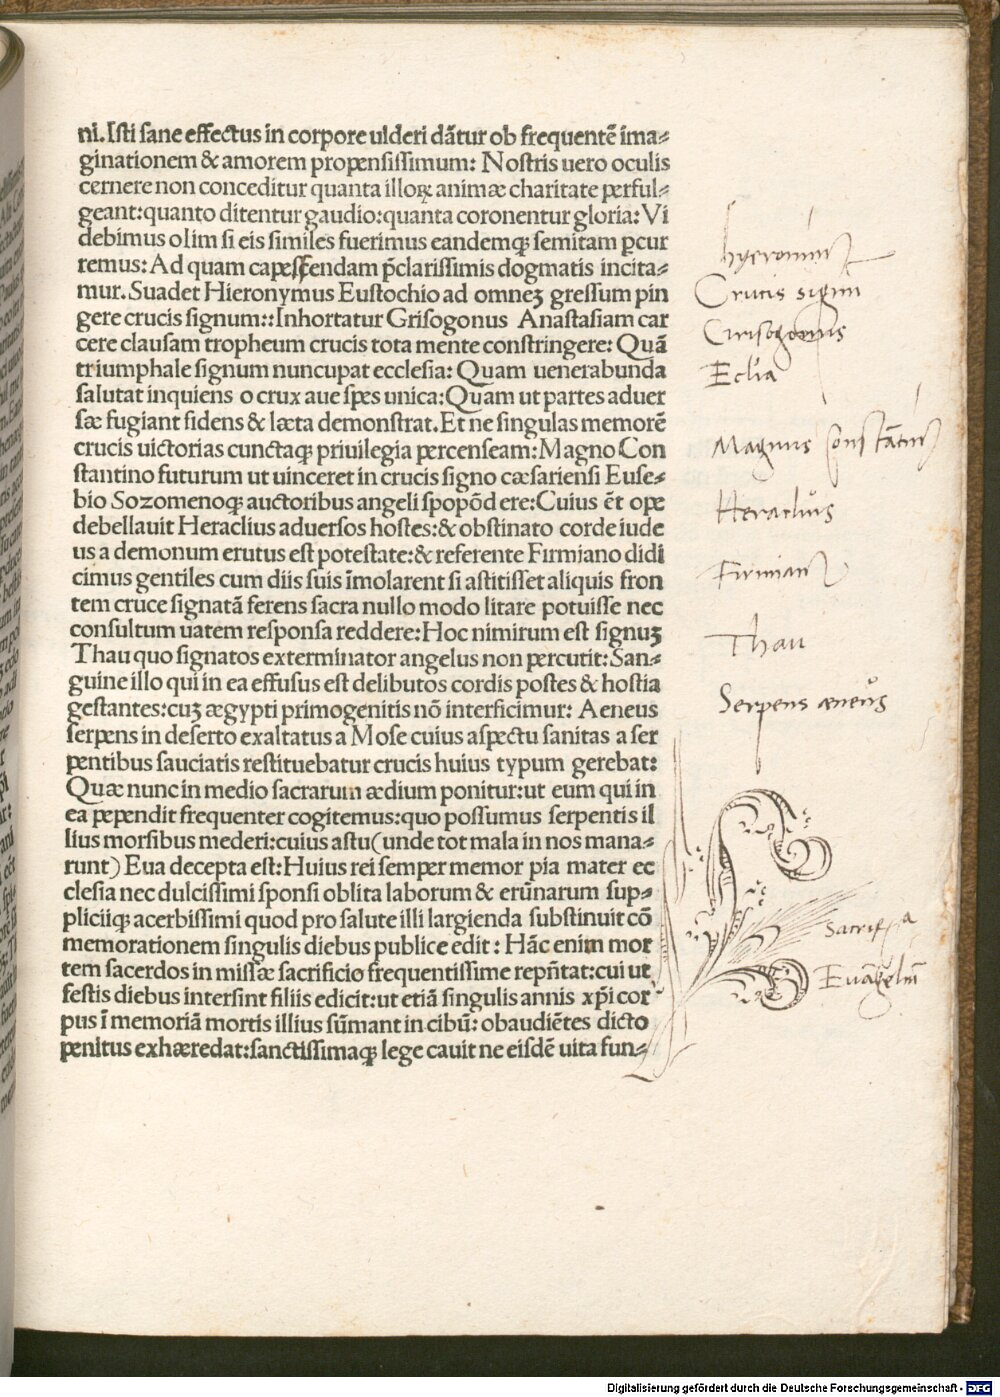 ni. Iſti ſane effectus in corpore ulderi dãtur ob frequentẽ ima⸗
ginationem & amorem propenſiſſimum: Noſtris uero oculis
cernere non conceditur quanta illoꝝ animæ charitate perful⸗
geant:quanto ditentur gaudio:quanta coronentur gloria: Vi
debimus olim ſi eis ſimiles fuerimus eandemqꝫ ſemitam ꝑcur
remus: Ad quam capeſſendam p̃clariſſimis dogmatis incita⸗
mur. Suadet Hieronymus Euſtochio ad omneꝫ greſſum pin
gere crucis ſignum:: Inhortatur Griſogonus Anaſtaſiam car
cere clauſam tropheum crucis tota mente conſtringere: Quã
triumphale ſignum nuncupat eccleſia: Quam uenerabunda
ſalutat inquiens o crux aue ſpes unica: Quam ut partes aduer
ſæ fugiant fidens & læta demonſtrat. Et ne ſingulas memorẽ
crucis uictorias cunctaqꝫ priuilegia percenſeam: Magno Con
ſtantino futurum ut uinceret in crucis ſigno cæſarienſi Euſe⸗
bio Sozomenoqꝫ auctoribus angeli ſpopõdere: Cuius ẽt ope
debellauit Heraclius aduerſos hoſtes: & obſtinato corde iude
us a demonum erutus eſt poteſtate: & referente Firmiano didi
cimus gentiles cum diis ſuis ĩmolarent ſi aſtitiſſet aliquis fron
tem cruce ſignatã ferens ſacra nullo modo litare potuiſſe nec
conſultum uatem reſponſa reddere: Hoc nimirum eſt ſignuꝫ
Thau quo ſignatos exterminator angelus non percutit: San⸗
guine illo qui in ea effuſus eſt delibutos cordis poſtes & hoſtia
geſtantes: cuꝫ ægypti primogenitis nõ interficimur: Aeneus
ſerpens in deſerto exaltatus a Moſe cuius aſpectu ſanitas a ſer
pentibus ſauciatis reſtituebatur crucis huius typum gerebat:
Quæ nunc in medio ſacrarum ædium ponitur: ut eum qui in
ea pependit frequenter cogitemus: quo poſſumus ſerpentis il
lius morſibus mederi: cuius aſtu (unde tot mala in nos mana⸗
runt) Eua decepta eſt: Huius rei ſemper memor pia mater ec
cleſia nec dulciſſimi ſponſi oblita laborum & erũnarum ſup⸗
pliciiqꝫ acerbiſſimi quod pro ſalute illi largienda ſubſtinuit cõ
memorationem ſingulis diebus publice edit: Hãc enim mor
tem ſacerdos in miſſæ ſacrificio frequentiſſime repñtat: cui ut
feſtis diebus interſint filiis edicit: ut etiã ſingulis annis xp̃i cor
pus ĩ memoriã mortis illius ſũmant in cibũ: obaudiẽtes dicto
penitus exhæredat: ſanctiſſimaqꝫ lege cauit ne eiſdẽ uita fun⸗
hyeronimus
Crucis signum
Crisogonius
Ecl̃ia
Magnus Constãtin
Heraclius
Firmian
Thau
Serpens æneus
Euãgeliũ
Digitalisierung gefördert durch die Deutsche Forschungsgemeinschaft - DFG